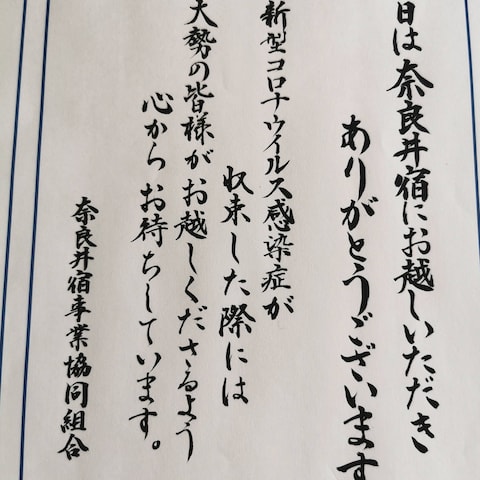 日は奈良井宿にお越しいただき
ありがとうございます
新型コロナウイルス感染症が
収束した際には
大勢の皆様がお越しくださるよう
心からお待ちしています。
奈良井宿事業協同組合